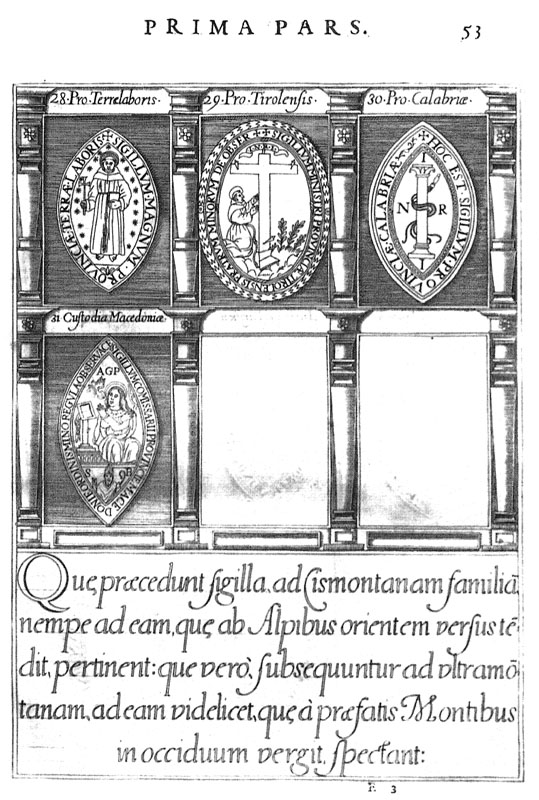 PRIMA PARS.
53
28·Pro·Terrelaboris·
29·Pro·Tirolensis·
30·Pro·Calabriæ·
SIGILLVM·MAGNVM·PROVINCIÆ·TERRÆ·LABORIS
SIGILLVM·MINISTRI·PROVINCIÆ·TIROLENSIS·FRATRVM·MINORVM·DE·OBSER
HOC·EST·SIGILVM·PROVINCIÆ·CALABRIÆ
I
N R
31 Custodia Macedoniæ
AGP
Quę præcedunt sigilla, ad Cismontanam familiã,
nempe ad eam, quę ab Alpibus orientem versus tẽ-
dit, pertinent: que verò, subsequuntur ad vltramõ-
tanam, ad eam videlicet, quę à præfatis Montibus
in occiduum vergit, spectant:
F 3